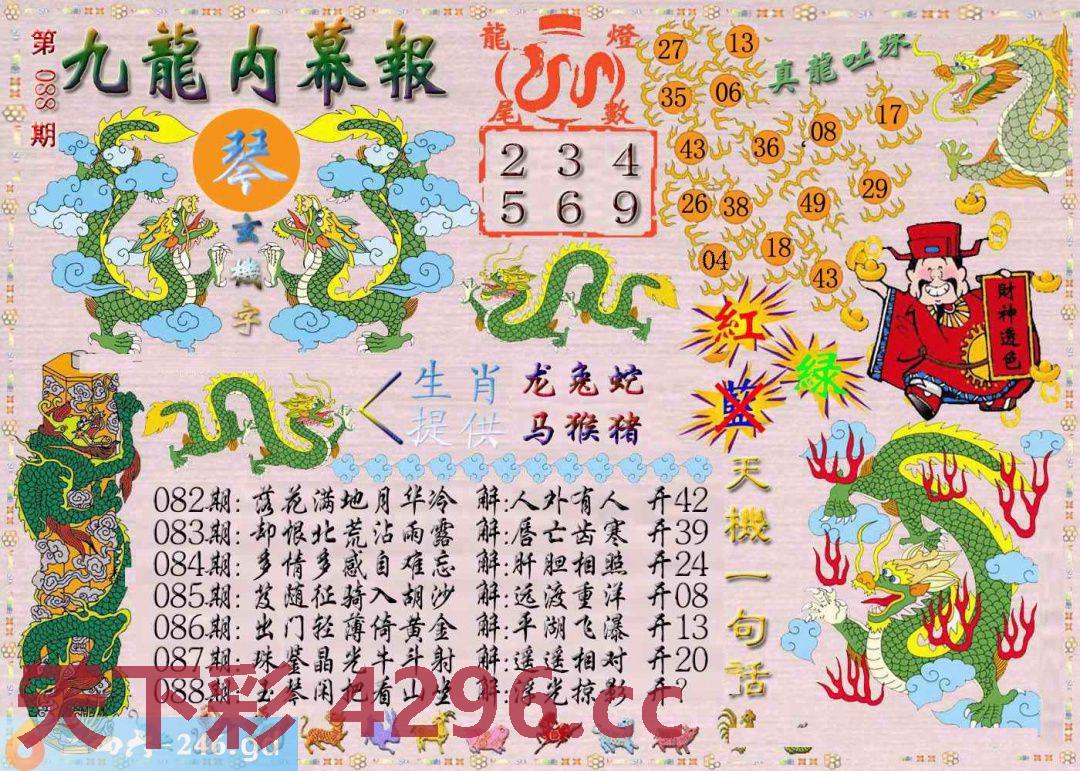 第088期
九龍内幕報
琴
玄機字
龍尾燈數
2 3 4
5 6 9
真龍吐珠
27 13
35 06
17
08
43 36
29
26 38 49
04 18 43
財神透色
紅
綠
藍
生肖提供
龙兔蛇
马猴猪
082期: 落花满地月华冷 解:人外有人 开42
083期: 却恨北荒沾雨露 解:唇亡齿寒 开39
084期: 多情多感自难忘 解:肝胆相照 开24
085期: 发随征骑入胡沙 解:远渡重洋 开08
086期: 出门轻薄倚黄金 解:平湖飞瀑 开13
087期: 珠鉴晶光牛斗射 解:遥遥相对 开20
088期: 玉琴闲把看山坐 解:浮光掠影 开?
天機一句话
天下彩 4296.cc
=246.gd